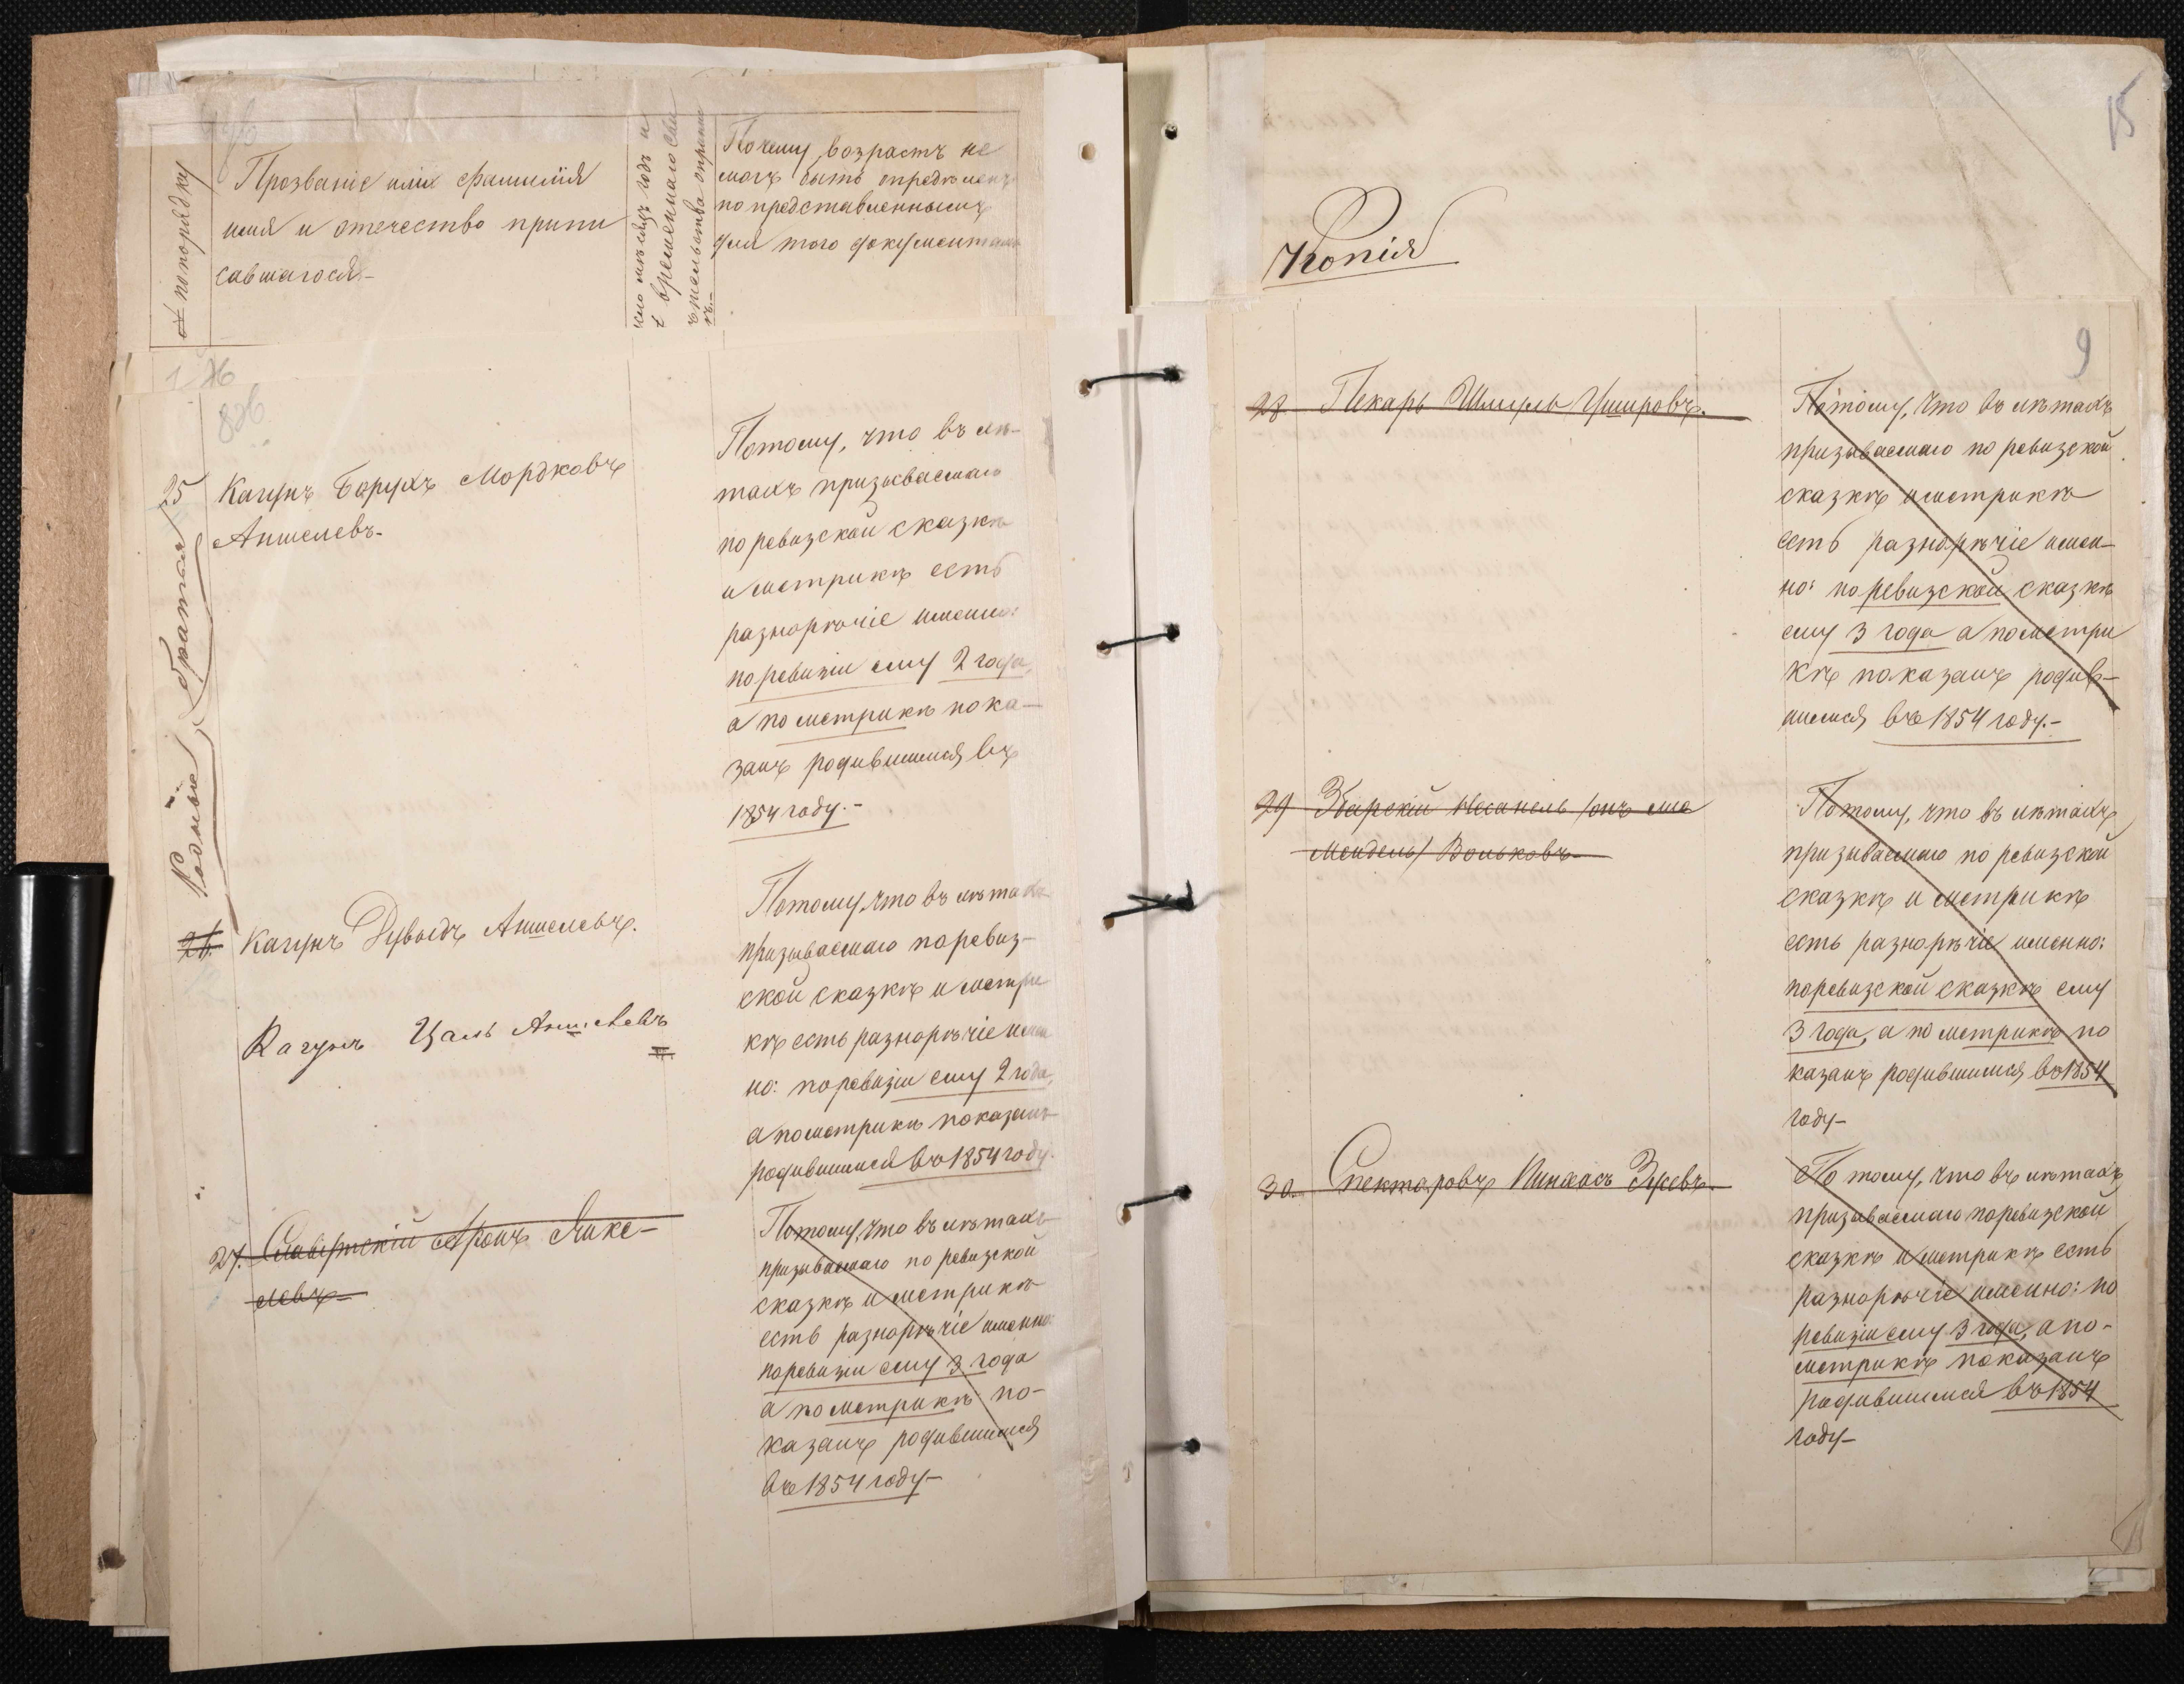 № по порядку
Прозваніе или фамилія
имя и отечество припи
савшагося.-
Почему возрастъ не
могъ быть опредѣленъ
по представленнымъ
для того документамъ
25
Кагунъ Борухъ Мордковъ
Аншелевъ.
Родные братья
Потому, что въ лѣ-
тахъ призываемаго
по ревизской сказкѣ
и метрикѣ есть
разнорѣчіе именно:
по ревизіи ему 2 года,
а по метрикѣ пока-
занъ родившимся въ
1854 году.-
26. Кагунъ Дувыдъ Аншелевъ.
Кагунъ Цаль Аншелевъ
Потому, что въ лѣтахъ
призываемаго по ревиз-
ской сказкѣ и метри
кѣ есть разнорѣчіе имен
но: по ревизіи ему 2 года,
а по метрикѣ показанъ
родившимся въ 1854 году.
27. Аронъ
Потому, что въ лѣтахъ
призываемаго по ревизской
сказкѣ и метрикѣ
есть разнорѣчіе именно:
по ревизіи ему 3 года
а по метрикѣ по-
казанъ родившимся
въ 1854 году-
15
Копія
9
28. Пекарь Шмуль Ушировъ.
Потому, что въ лѣтахъ
призываемаго по ревизской
сказкѣ и метрикѣ
есть разнорѣчіе имен-
но: по ревизской сказкѣ
ему 3 года а по метри
кѣ показанъ родив-
шимся въ 1854 году.-
29 Збарскій Несанель /онъ же
Мендель/ Вольковъ-
Потому, что въ лѣтахъ
призываемаго по ревизской
сказкѣ и метрикѣ
есть разнорѣчіе именно:
по ревизской сказкѣ ему
3 года, а по метрикѣ по
казанъ родившимся въ 1854
году-
30. Спекторовъ Пинхасъ Зусевъ.
Потому, что въ лѣтахъ
призываемаго по ревизской
сказкѣ и метрикѣ есть
разнорѣчіе именно: по
ревизіи ему 3 года, а по-
метрикѣ показанъ
родившимся въ 1854
году-